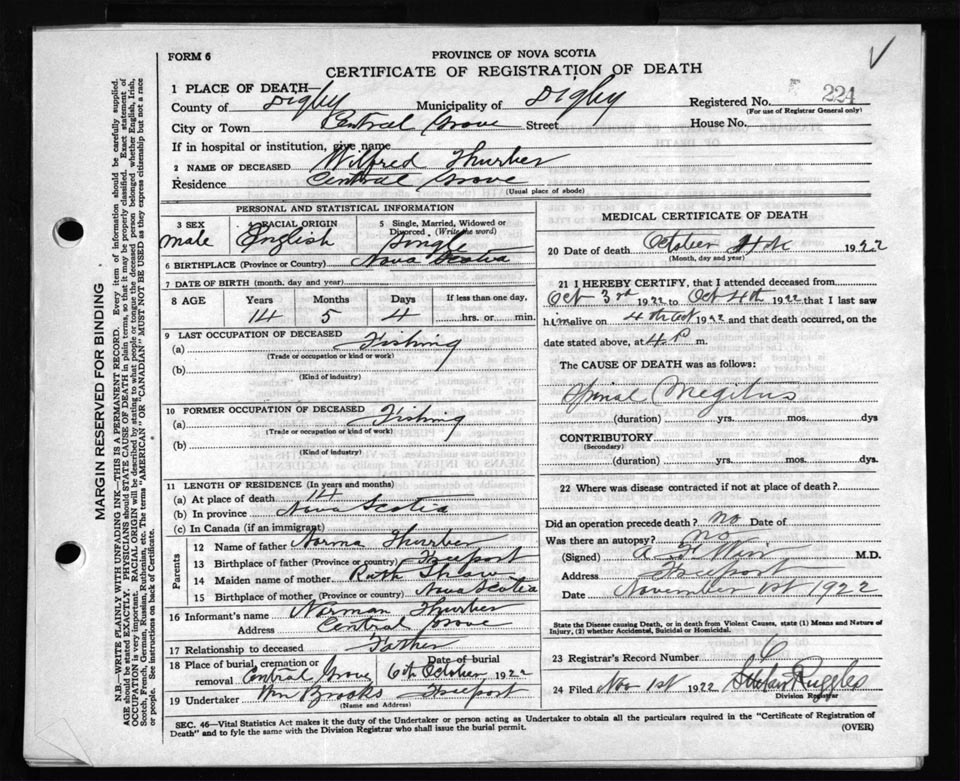 FORM 6
PROVINCE OF NOVA SCOTIA
CERTIFICATE OF REGISTRATION OF DEATH
1 PLACE OF DEATH—
County of Digby Municipality of Digby Registered No. 224
(For use of Registrar General only)
City or Town Central Grove Street House No.
If in hospital or institution, give name
2 NAME OF DECEASED Wilfred Thurber
Residence Central Grove
(Usual place of abode)
PERSONAL AND STATISTICAL INFORMATION
3 SEX Male
4 RACIAL ORIGIN English
5 Single, Married, Widowed or Divorced (Write the word) Single
6 BIRTHPLACE (Province or Country) Nova Scotia
7 DATE OF BIRTH (month, day and year)
8 AGE Years 14 Months 5 Days 4 If less than one day, hrs. or min.
9 LAST OCCUPATION OF DECEASED
(a) Fishing
(Trade or occupation or kind of work)
(b)
(Kind of industry)
10 FORMER OCCUPATION OF DECEASED
(a) Fishing
(Trade or occupation or kind of work)
(b)
(Kind of industry)
11 LENGTH OF RESIDENCE (In years and months)
(a) At place of death 14
(b) In province Nova Scotia
(c) In Canada (if an immigrant)
Parents
12 Name of father Norma Thurber
13 Birthplace of father (Province or country) Freeport
14 Maiden name of mother Ruth
15 Birthplace of mother (Province or country) Nova Scotia
16 Informant's name Norman Thurber
Address Central Grove
17 Relationship to deceased Father
18 Place of burial, cremation or removal Central Grove Date of burial 6th October, 1922
19 Undertaker Wm Brooks Freeport
(Name and Address)
MEDICAL CERTIFICATE OF DEATH
20 Date of death October 4th 1922
(Month, day and year)
21 I HEREBY CERTIFY, that I attended deceased from
Oct 3rd 1922 to Oct 4th 1922 that I last saw
him alive on 4th Oct 1922 and that death occurred, on the
date stated above, at 4 P m.
The CAUSE OF DEATH was as follows:
Spinal Megitus
(duration) yrs. mos. dys
CONTRIBUTORY
(Secondary)
(duration) yrs. mos. dys.
22 Where was disease contracted if not at place of death?
Did an operation precede death? no Date of
Was there an autopsy? no
(Signed) M.D.
Address Freeport
Date November 1st 1922
State the Disease causing Death, or in death from Violent Causes, state (1) Means and Nature of
Injury, (2) whether Accidental, Suicidal or Homicidal.
23 Registrar's Record Number 6
24 Filed Nov 1st 1922 Ruggles
Division Registrar
SEC. 46—Vital Statistics Act makes it the duty of the Undertaker or person acting as Undertaker to obtain all the particulars required in the "Certificate of Registration of
Death" and to fyle the same with the Division Registrar who shall issue the burial permit.
(OVER)
MARGIN RESERVED FOR BINDING
N.B.—WRITE PLAINLY WITH UNFADING INK—THIS IS A PERMANENT RECORD. Every item of information should be carefully supplied.
AGE should be stated EXACTLY. PHYSICIANS should STATE CAUSE OF DEATH in plain terms, so that it may be properly classified. Exact statement of
OCCUPATION is very important. RACIAL ORIGIN will be described by stating to what people or tongue the deceased person belonged whether English, Irish,
Scotch, French, German, Russian, Ruthenian, etc. The terms "AMERICAN" OR "CANADIAN" MUST NOT BE USED as they express citizenship but not a race
or people. See instructions on back of Certificate.